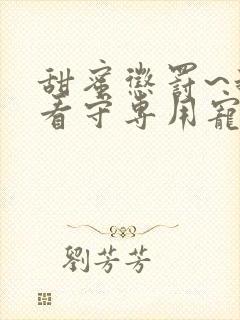 甜蜜懲罰~
看守專用寵
劉芳芳